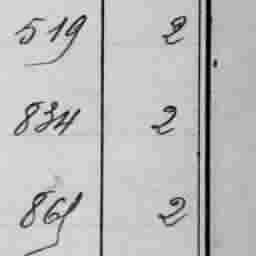 519 2
834 2
861 2